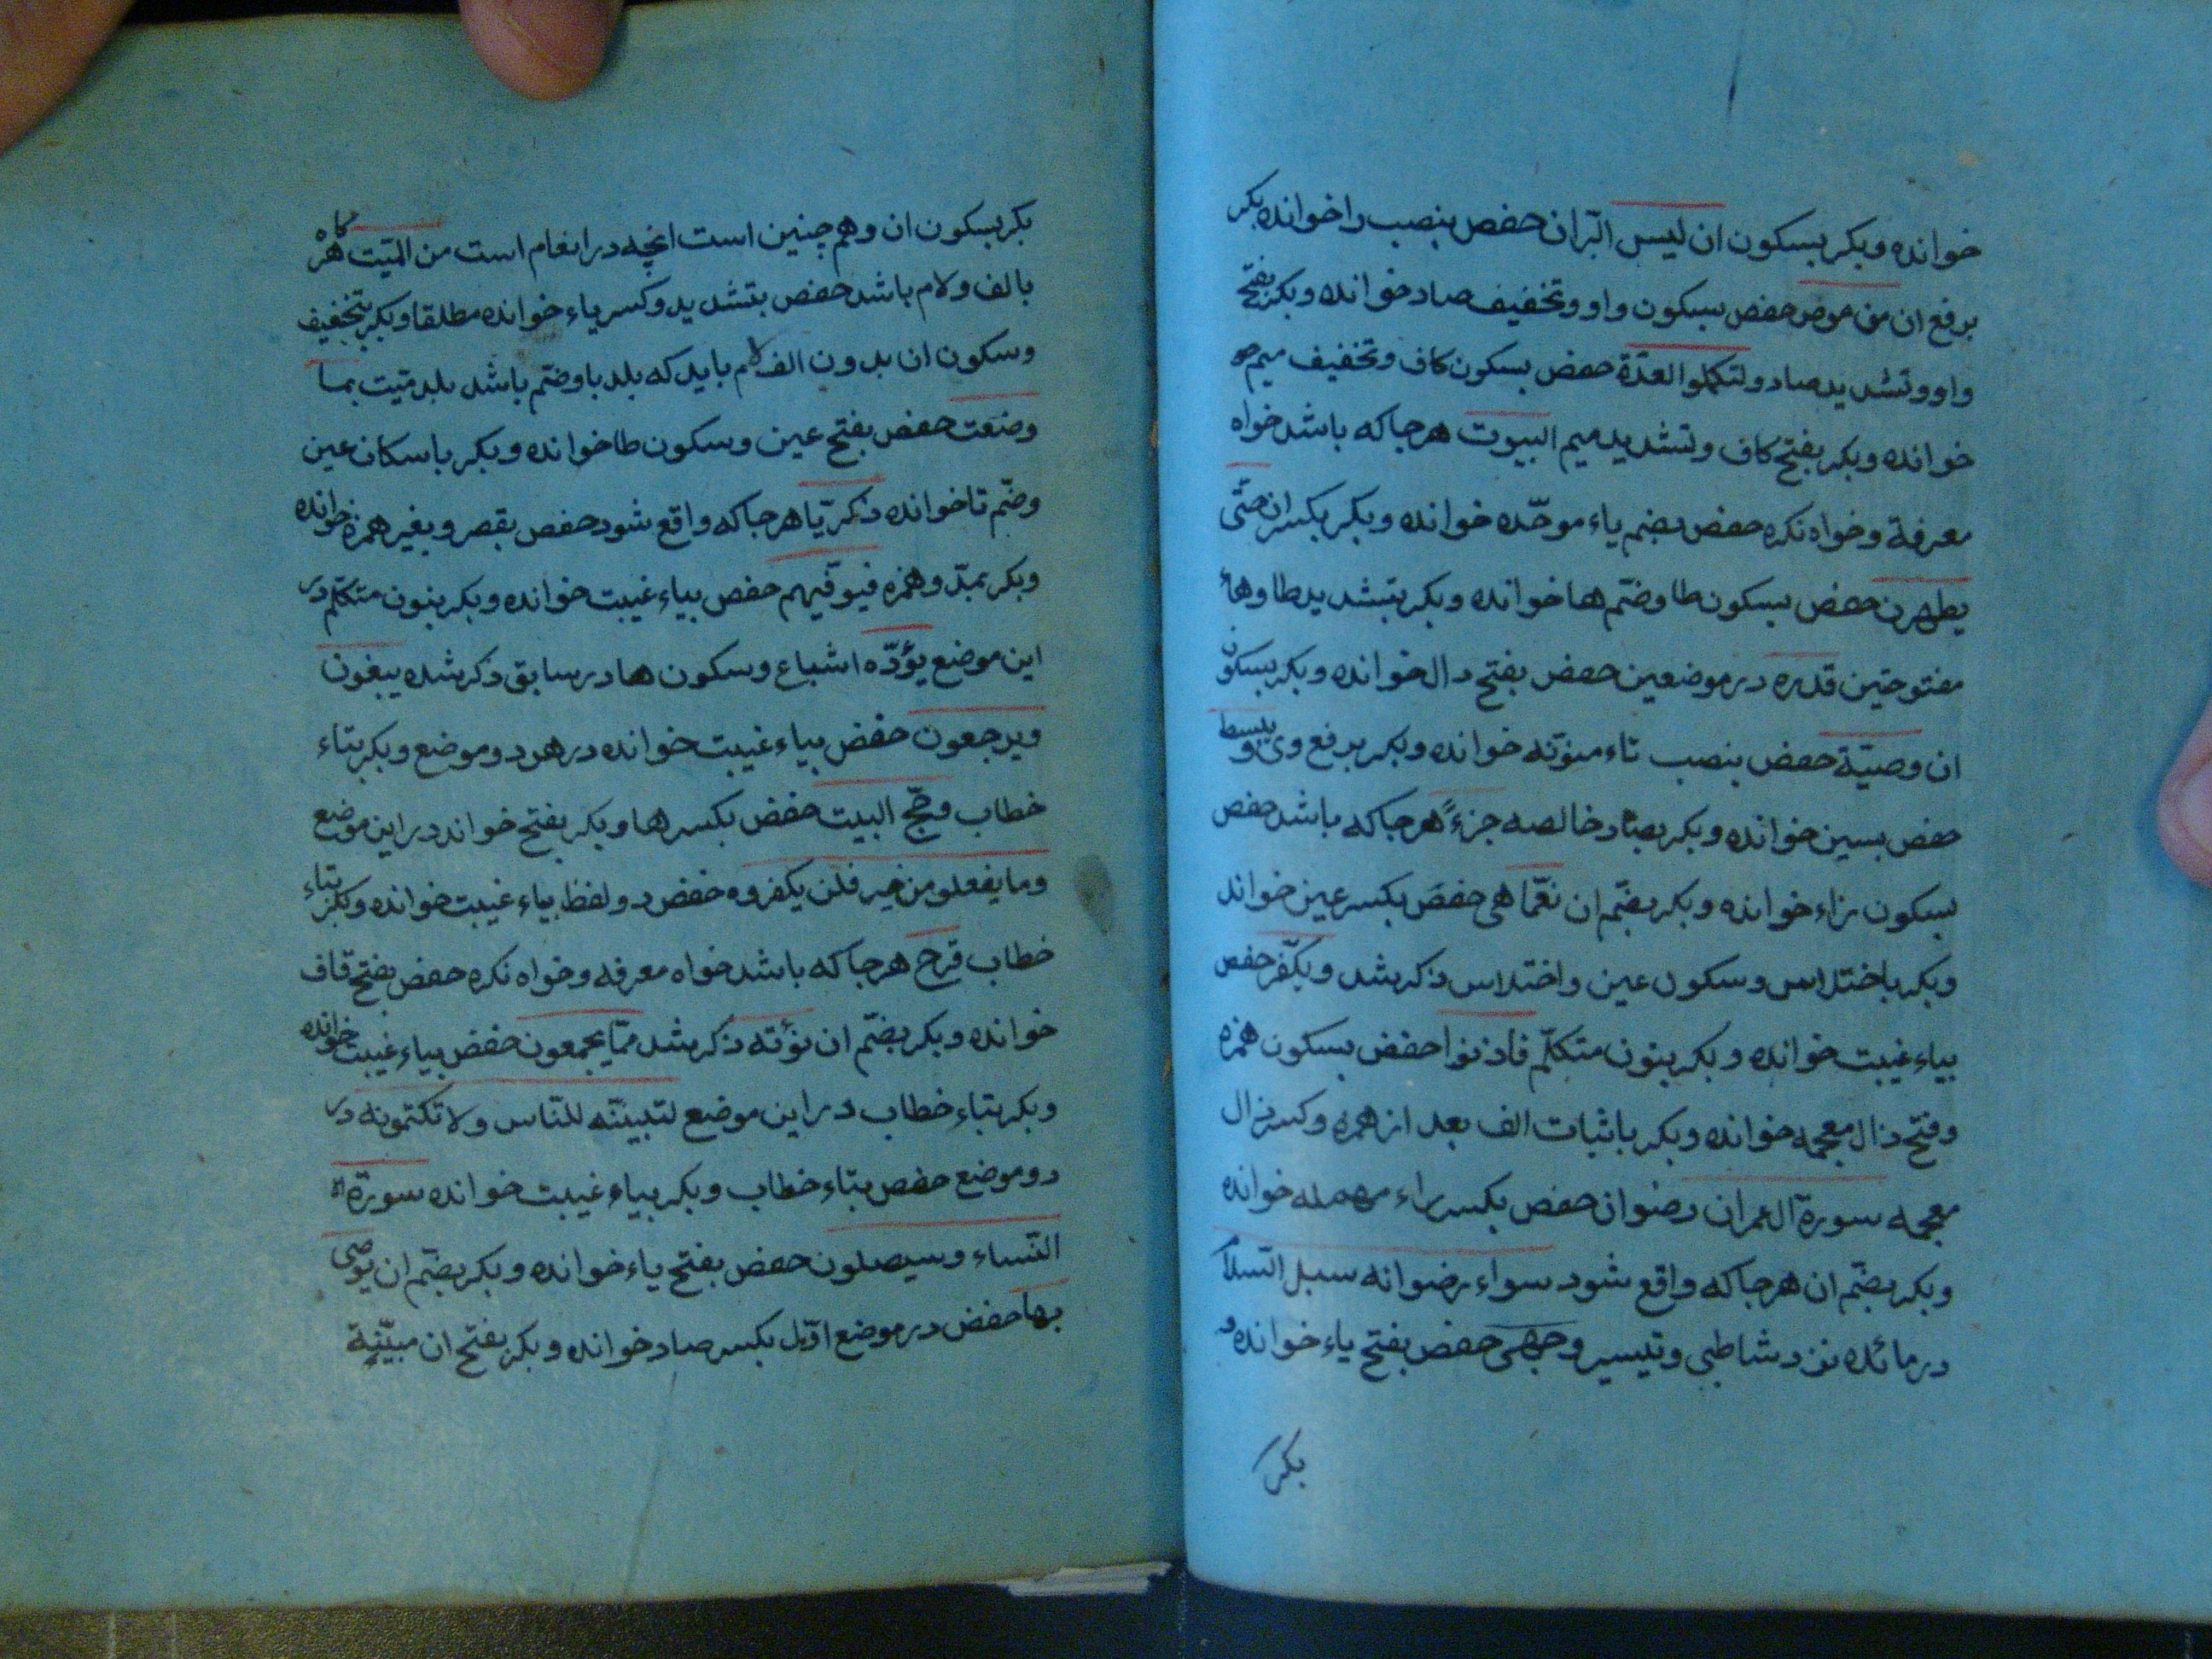 خوانده وبکر بسکون ان لیس البرّ ان حفص بنصب را خوانده بکر
برفع ان من موص حفص بسکون واو وتخفیف صاد خوانده وبکر بفتح
واو وتشدید صاد ولتکملوا العدّة حفص بسکون کاف وتخفیف میم
خوانده وبکر بفتح کاف وتشدید میم البیوت هرجا که باشد خواه
معرفة وخواه نکره حفص بضم یاء موحّده خوانده وبکر بکسر ان حتّی
یطهرن حفص بسکون طا وضمّ ها خوانده وبکر بتشدید طا وهاء
مفتوحتین قدره در موضعین حفص بفتح دال خوانده وبکر بسکون
ان وصیّة حفص بنصب تاء منوّنه خوانده وبکر برفع وی ویبسط
حفص بسین خوانده وبکر بصاد خالصه جزءً هرجا که باشد حفص
بسکون زاء خوانده وبکر بضّم ان نعّما هی حفص بکسر عین خواند
وبکر باختلاس وسکون عین واختلاس ذکر شد ویکفّر حفص
بیاء غیبت خوانده وبکر بنون متکلّم فاذنوا حفص بسکون همزه
وفتح ذال معجمه خوانده وبکر باثبات الف بعد از همزه وکسر ذال
معجمه سورة آل عمران رضوان حفص بکسر راء مهمله خوانده
وبکر بضّم ان هرجا که واقع شود سواء رضوانه سبل السّلام
در مائده نزد شاطبی وتیسیر وجهی حفص بفتح یاء خوانده و
بکر
بکر بسکون ان وهم چنین است انچه در انعام است من المیّت هرکاه
بالف ولام باشد حفص بتشدید وکسر یاء خوانده مطلقا وبکر بتخفیف
وسکون ان بدون الف لام باید که بلد با وضّم باشد بلد میّت بما
وضعت حفص بفتح عین وسکون طا خوانده وبکر باسکان عین
وضّم تا خوانده زکریّا هرجا که واقع شود حفص بقصر وبغیر همزه خوانده
وبکر بمدّ وهمزه فیوفّیهم حفص بیاء غیبت خوانده وبکر بنون متکلّم در
این موضع یؤدّه اشباع وسکون ها در سابق ذکر شده یبغون
ویرجعون حفص بیاء غیبت خوانده در هر دو موضع وبکر بتاء
خطاب وحجّ البیت حفص بکسر ها وبکر بفتح خواند در این موضع
وما یفعلو من خیر فلن یکفروه حفص دو لفظ بیاء غیبت خوانده وبکر بتاء
خطاب قرح هرجا که باشد خواه معرفه وخواه نکره حفص بفتح قاف
خوانده وبکر بضّم ان نؤته ذکر شد ممّا یجمعون حفص بیاء غیبت خوانده
وبکر بتاء خطاب در این موضع لتبیننّه للنّاس ولا تکتمونه در
دو موضع حفص بتاء خطاب وبکر بیاء غیبت خوانده سورة
النّساء وسیصلون حفص بفتح یاء خوانده وبکر بضّم ان یوصی
بها حفص در موضع اوّل بکسر صاد خوانده وبکر بفتح ان مبیّنة